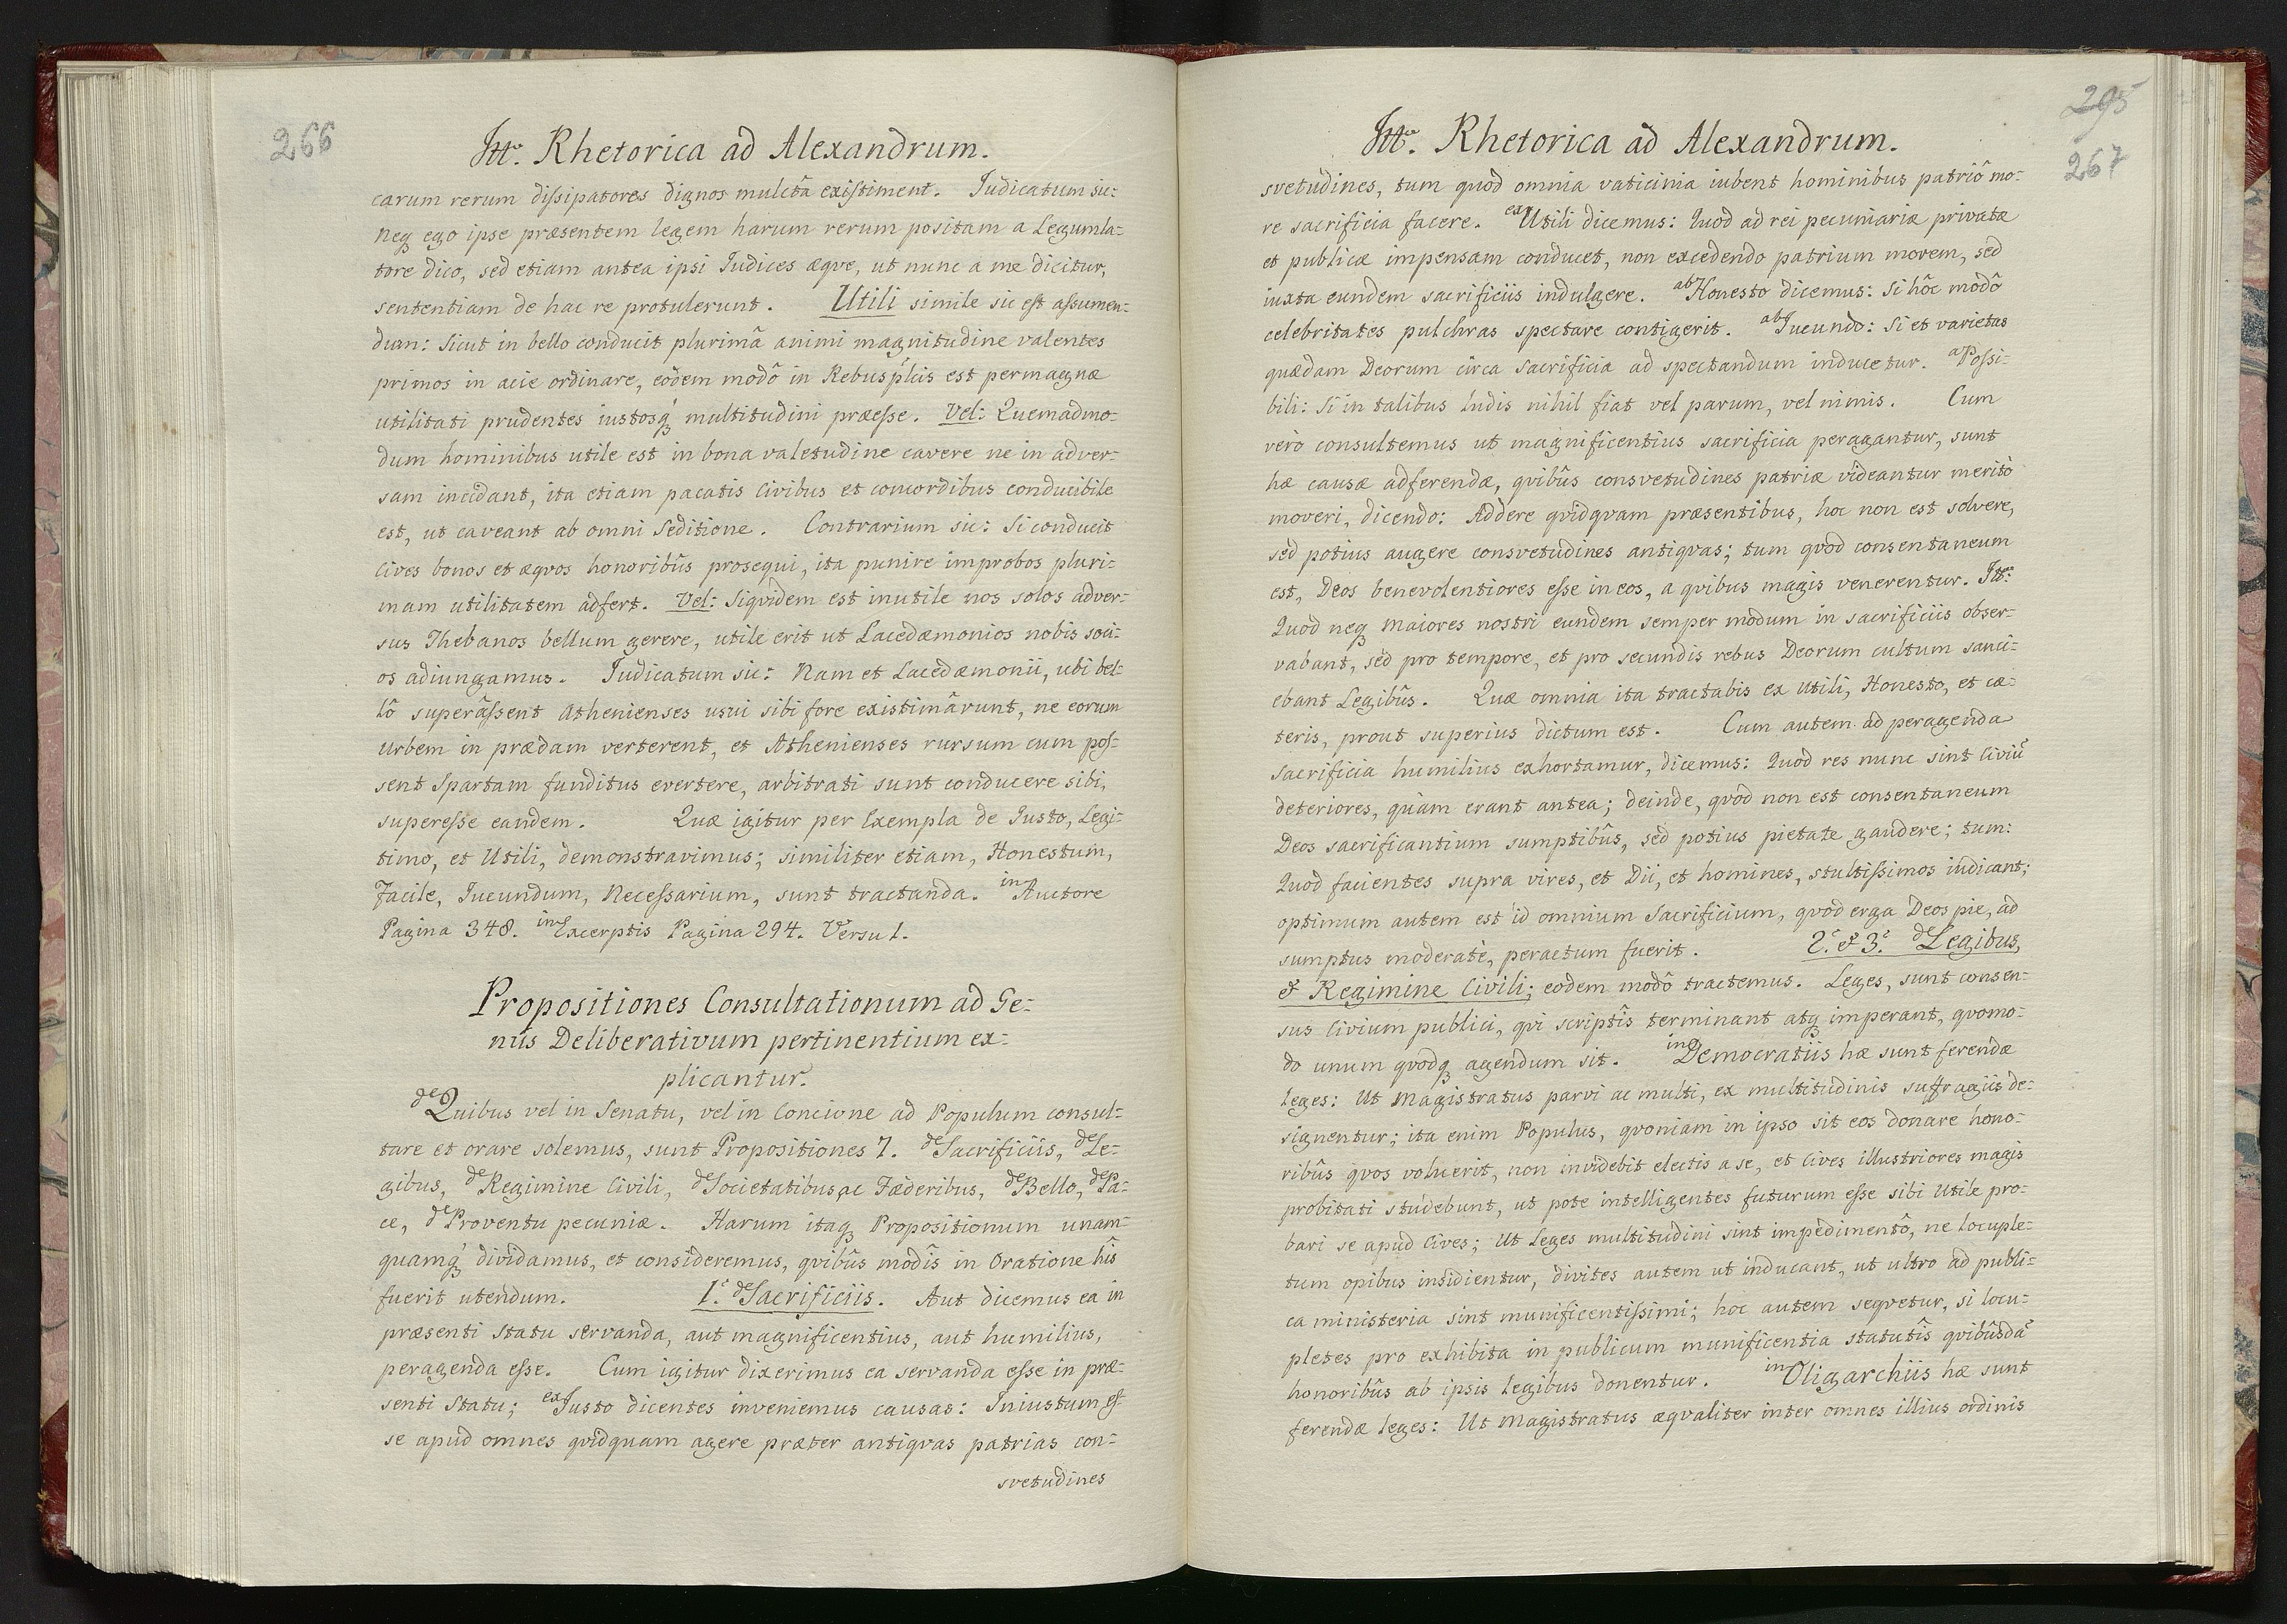 266
Itt. Rhetorica ad Alexandrum.
carum rerum dissipatores dignos mulctâ existiment. Judicatum sic:
Neq ego ipse præsentem legem harum rerum positam a Legumla-
tore dico, sed etiam antea ipsi Judices æqve, ut nunc a me dicitur,
sententiam de hac re protulerunt. Utili simile sic est assumen-
dum: Sicut in bello conducit plurimâ animi magnitudine valentes
primos in acie ordinare, eôdem modô in Rebuspłcis est permagnæ
utilitati prudentes iustosq́ multitudini præesse. Vel: Quemadmo-
dum hominibus utile est in bona valetudine cavere ne in adver-
sam incidant, ita etiam pacatis Civibus et concordibus conducibile
est, ut caveant ab omni Seditione. Contrarium sic: Si conducit
Cives bonos et æqvos honoribûs prosequi, ita punire improbos pluri-
mam utilitatem adfert. Vel: Siqvidem est inutile nos solos adver-
sus Thebanos bellum gerere, utile erit ut Lacedæmonios nobis soci-
os adiungamus. Judicatum sic: Nam et Lacedæmonii, ubi bel-
lô superâssent Athenienses usui sibi fore existimârunt, ne eorum
Urbem in prædam verterent, et Athenienses rursum cum pos-
sent Spartam funditus evertere, arbitrati sunt conducere sibi,
superesse eandem. Quæ igitur per Exempla de Justo, Legi-
timo, et Utili, demonstravimus; similiter etiam, Honestum,
Facile, Jucundum, Necessarium, sunt tractanda. in Auctore
Pagina 348. in Excerptis Pagina 294. Versu 1.
Propositiones Consultationum ad Ge-
nus Deliberativum pertinentium ex-
plicantur.
de Quibus vel in Senatu, vel in Concione ad Populum consul-
tare et orare solemus, sunt Propositiones 7. de Sacrificiis, de Le-
gibus, de Regimine Civili, de Societatibus ac Fæderibus, de Bello, de Pa-
ce, de Proventu pecuniæ. Harum itaq Propositionum unam-
quamq́ dividamus, et consideremus, qvibûs modîs in Oratione hîs
fuerit utendum. 1.° de Sacrificiis. Aut dicemus ea in
præsenti Statu servanda, aut magnificentius, aut humilius,
peragenda esse. Cum igitur dixerimus ea servanda esse in præ-
senti Statu; ex Justo dicentes inveniemus causas: Iniustum es-
se apud omnes qvidquam agere præter antiqvas patrias con-
svetudines
295
267
Itt. Rhetorica ad Alexandrum.
svetudines, tum quod omnia vaticinia iubent hominibus patriô mo-
re sacrificia facere. ex Utili dicemus: Quod ad rei pecuniariæ privatæ
et publicæ impensam conducet, non excedendo patrium morem, sed
iuxta eundem sacrificiis indulgere. ab Honesto dicemus: Si hôc modô
celebritates pulchras spectare contigerit. ab Jucundo: Si et varietas
quædam Deorum circa Sacrificia ad spectandum inducetur. a Possi-
bili: Si in talibus ludis nihil fiat vel parum, vel nimis. Cum
verò consultemus ut magnificentius sacrificia peragantur, sunt
hæ causæ adferendæ, qvibûs consvetudines patriæ videantur meritò
moveri, dicendo: Addere qvidqvam præsentibus, hoc non est solvere,
sed potius augere consvetudines antiqvas; tum qvod consentaneum
est, Deos benevolentiores esse in eos, a qvibus magis venerentur. Itt:
Quod neq Maiores nostri eundem semper modum in sacrificiis obser-
vabant, sed pro tempore, et pro secundis rebus Deorum cultum sanci-
ebant Legibûs. Quæ omnia ita tractabis ex Utili, Honesto, et cæ-
teris, prout superius dictum est. Cum autem ad peragenda
sacrificia humilius exhortamur, dicemus: Quod res nunc sint Civiũ
deteriores, quàm erant antea; deinde, qvod non est consentaneum
Deos sacrificantium sumptibûs, sed potius pietate gaudere; tum:
Quod facientes supra vires, et Dii, et homines, stultissimos iudicant;
optimum autem est id omnium Sacrificium, qvod erga Deos pie, ad
sumptus moderatè, peractum fuerit. 2.° & 3.° de Legibus,
& Regimine Civili; eodem modô tractemus. Leges, sunt consen-
sus Civium publici, qvi scriptîs terminant atq imperant, qvomo-
do unum qvodq agendum sit. in Democratiis hæ sunt ferendæ
leges: Ut Magistratus parvi ac multi, ex multitudinis suffragiis de-
signentur; ita enim Populus, qvoniam in ipso sit eos donare hono-
ribûs qvos voluerit, non invidebit electis a se, et Cives illustriores magis
probitati studebunt, ut pote intelligentes futurum esse sibi Utile pro-
bari se apud Cives; Ut Leges multitudini sint impedimentô, ne locuple-
tum opibus insidientur, divites autem ut inducant, ut ultro ad publi-
ca ministeria sint munificentissimi; hoc autem seqvetur, si locu-
pletes pro exhibita in publicum munificentia statutîs qvibûsdã
honoribûs ab ipsis legibus donentur. in Oligarchiis hæ sunt
ferendæ leges: Ut Magistratus æqvaliter inter omnes illius ordinis